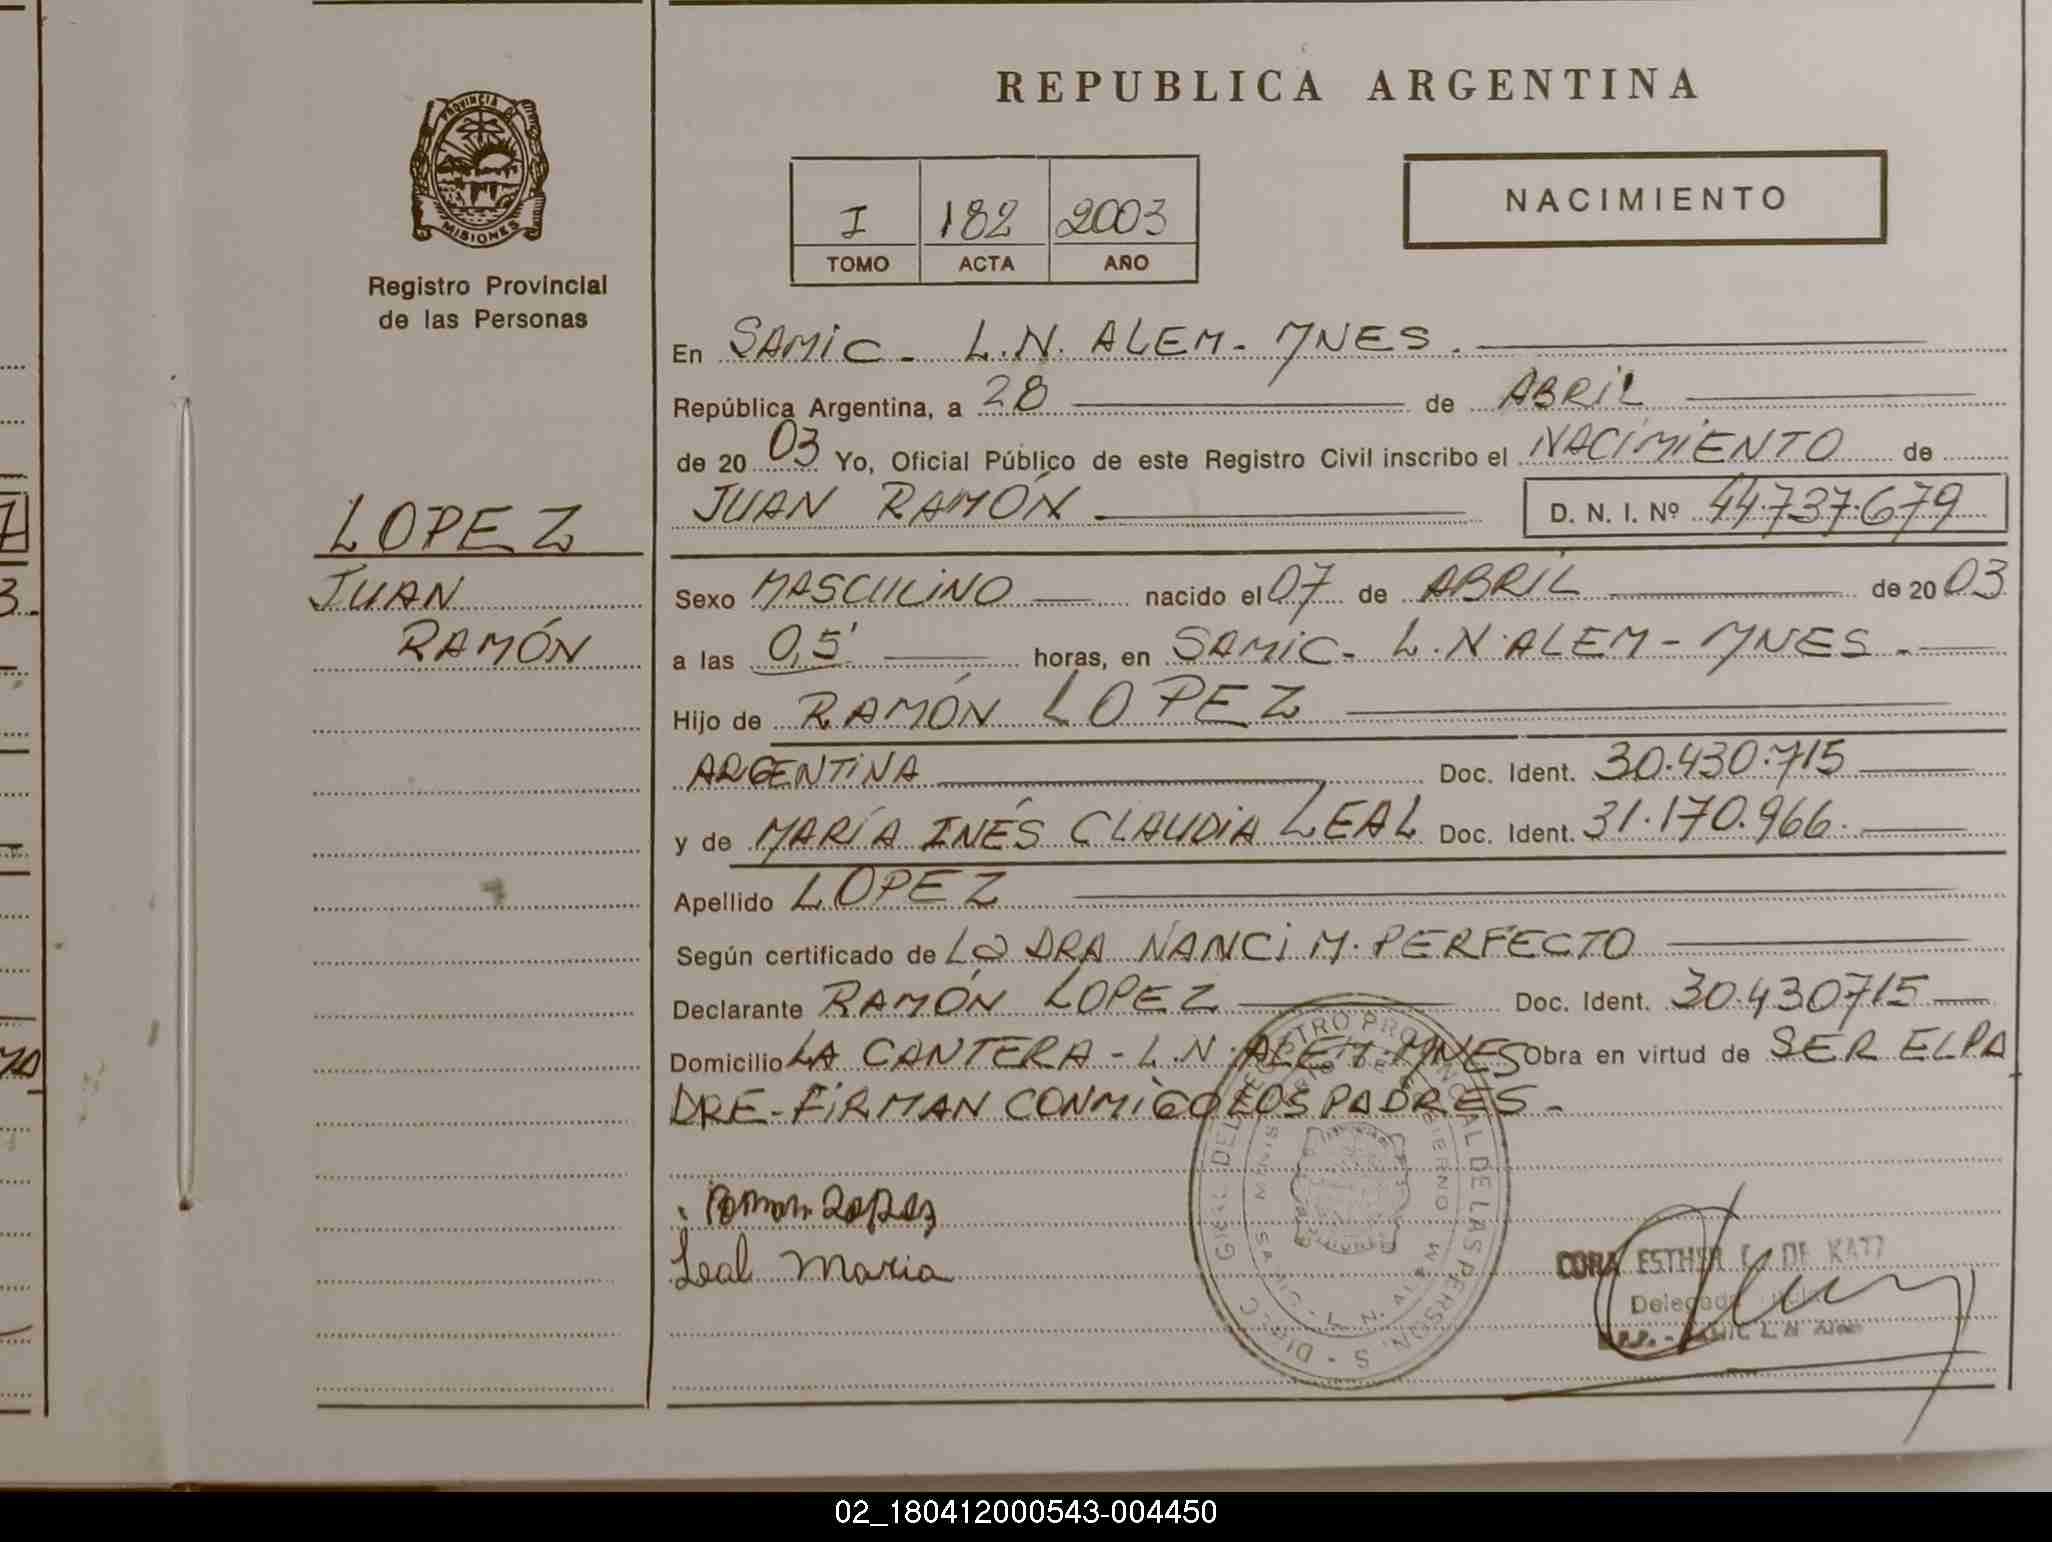 REPUBLICA ARGENTINA
PROVINCIA DE
MISIONES
Registro Provincial
de las Personas
I 182 2003
TOMO ACTA AÑO
NACIMIENTO
En SAMIC - L.N. ALEM - MNES. 
República Argentina, a 28 de ABRIL
de 20 03 Yo, Oficial Público de este Registro Civil inscribo el NACIMIENTO de
JUAN RAMÓN D. N. I. Nº 44.737.679
LOPEZ
JUAN
RAMÓN
Sexo MASCULINO nacido el 07 de ABRIL de 20 03
a las 0,5' horas, en SAMIC - L.N. ALEM - MNES.-
Hijo de RAMÓN LOPEZ
ARGENTINA Doc. Ident. 30.430.715
y de MARÍA INÉS CLAUDIA LEAL Doc. Ident. 31.170.966.
Apellido LOPEZ
Según certificado de La DRA NANCI M. PERFECTO
Declarante RAMÓN LOPEZ Doc. Ident. 30.430715
Domicilio LA CANTERA - L.N. ALEM - MNES Obra en virtud de SER EL PA
DRE - FIRMAN CONMIGO LOS PADRES -
Ramon Lopez
Leal Maria
REGISTRO PROVINCIAL DE LAS PERSONAS
CORA ESTHER DE KATZ
Delegada
SAMIC L. N. Alem
02_180412000543-004450